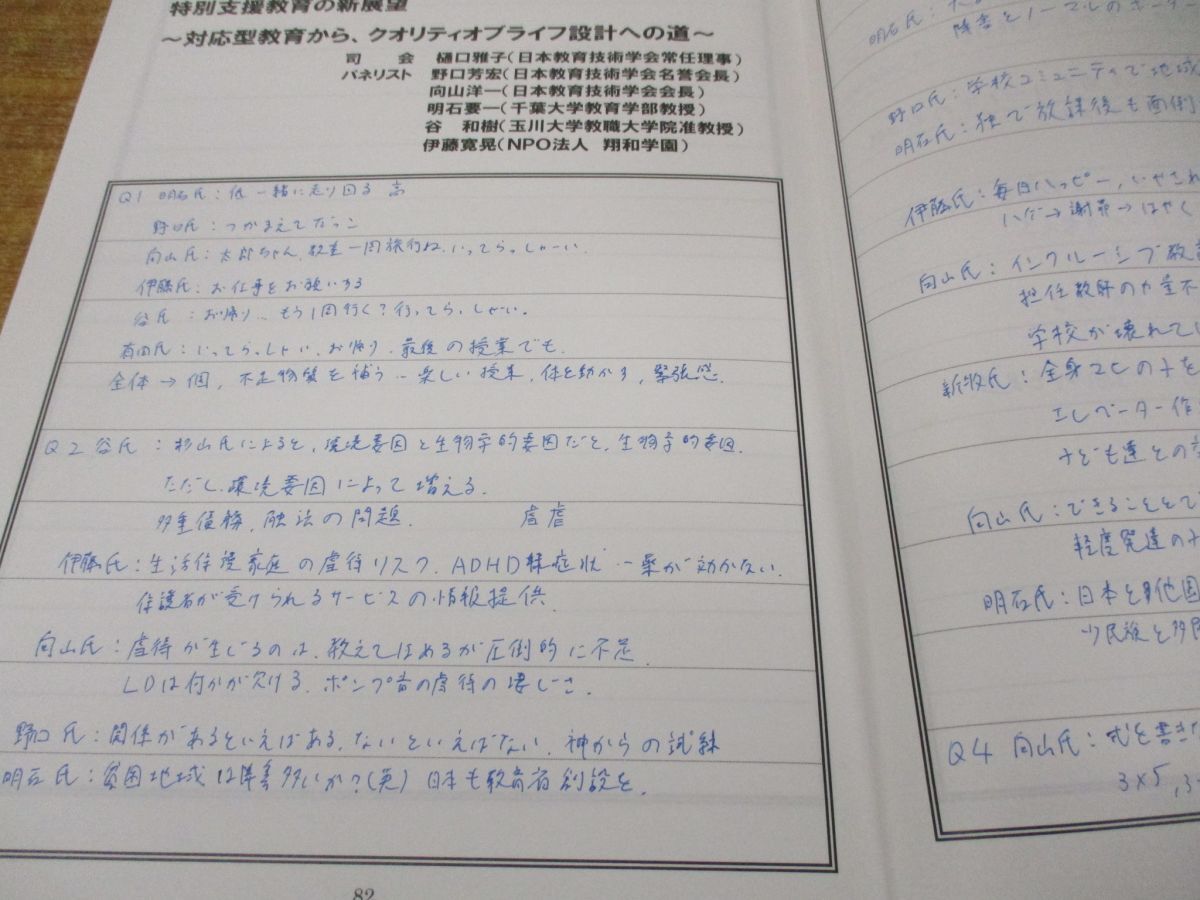 特別支援教育の新展望
～対応型教育から、クオリティオブライフ設計への道～
司　会　樋口雅子(日本教育技術学会常任理事)
パネリスト　野口芳宏(日本教育技術学会名誉会長)
向山洋一(日本教育技術学会会長)
明石要一(千葉大学教育学部教授)
谷　和樹(玉川大学教職大学院准教授)
伊藤寛晃(NPO法人　翔和学園)
Q1 明石氏：低 一緒に走り回る 高
野口氏：つかまえてだっこ
向山氏：太郎ちゃん、教室一周旅行ね、いってらっしゃーい．
伊藤氏：お仕事をお願いする
谷氏：お帰り、もう1周行く？行ってらっしゃい．
有田氏：いってらっしゃい、お帰り、最後の授業でも．
全体→個，不足物質を補う…楽しい授業，体を動かす，緊張感．
Q2 谷氏：杉山氏によると，環境要因と生物学的要因だと．生物学的要因．
ただし、環境要因によって増える．
多重債務、の問題．虐
伊藤氏：生活保護家庭の虐待リスク．ADHD様症状…薬が効かない．
保護者が受けられるサービスの情報提供．
向山氏：虐待が生じるのは、教えてほめるが圧倒的に不足．
LDは何かが欠ける．の虐待の
野口氏：関係があるといえばある，ないといえばない．神からの試練
明石氏：貧困地域は障害多いか？(英) 日本も教育省創設を．
82
明石氏：
障害をノーマルの
野口氏：学校コミュニティで地域
明石氏：独で放課後も面倒
伊藤氏：毎日ハッピー，いやされ
→謝罪→はやく
向山氏：インクルーシブ教育
担任教師の力量不
学校が壊れてい
新牧氏：全身の子を
エレベーター作
子ども達との交
向山氏：できることとで
軽度発達の子
明石氏：日本と他国
少民族と多民
Q4 向山氏：式を書きな
3×5，3